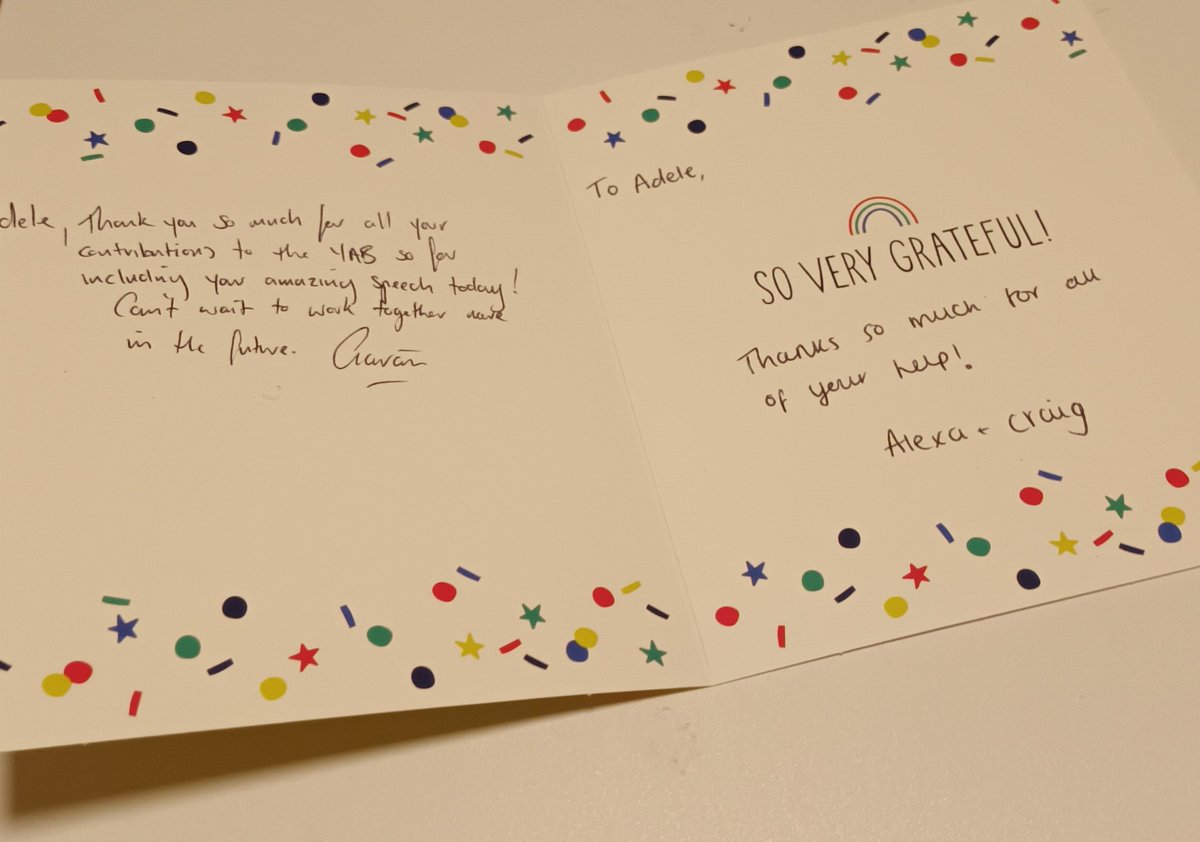 dele, Thank you so much for all your
contributions to the YAB so far
including your amazing speech today!
Can't wait to work together more
in the future. Ciarán
To Adele,
SO VERY GRATEFUL!
Thanks so much for all
of your help!
Alexa + Craig